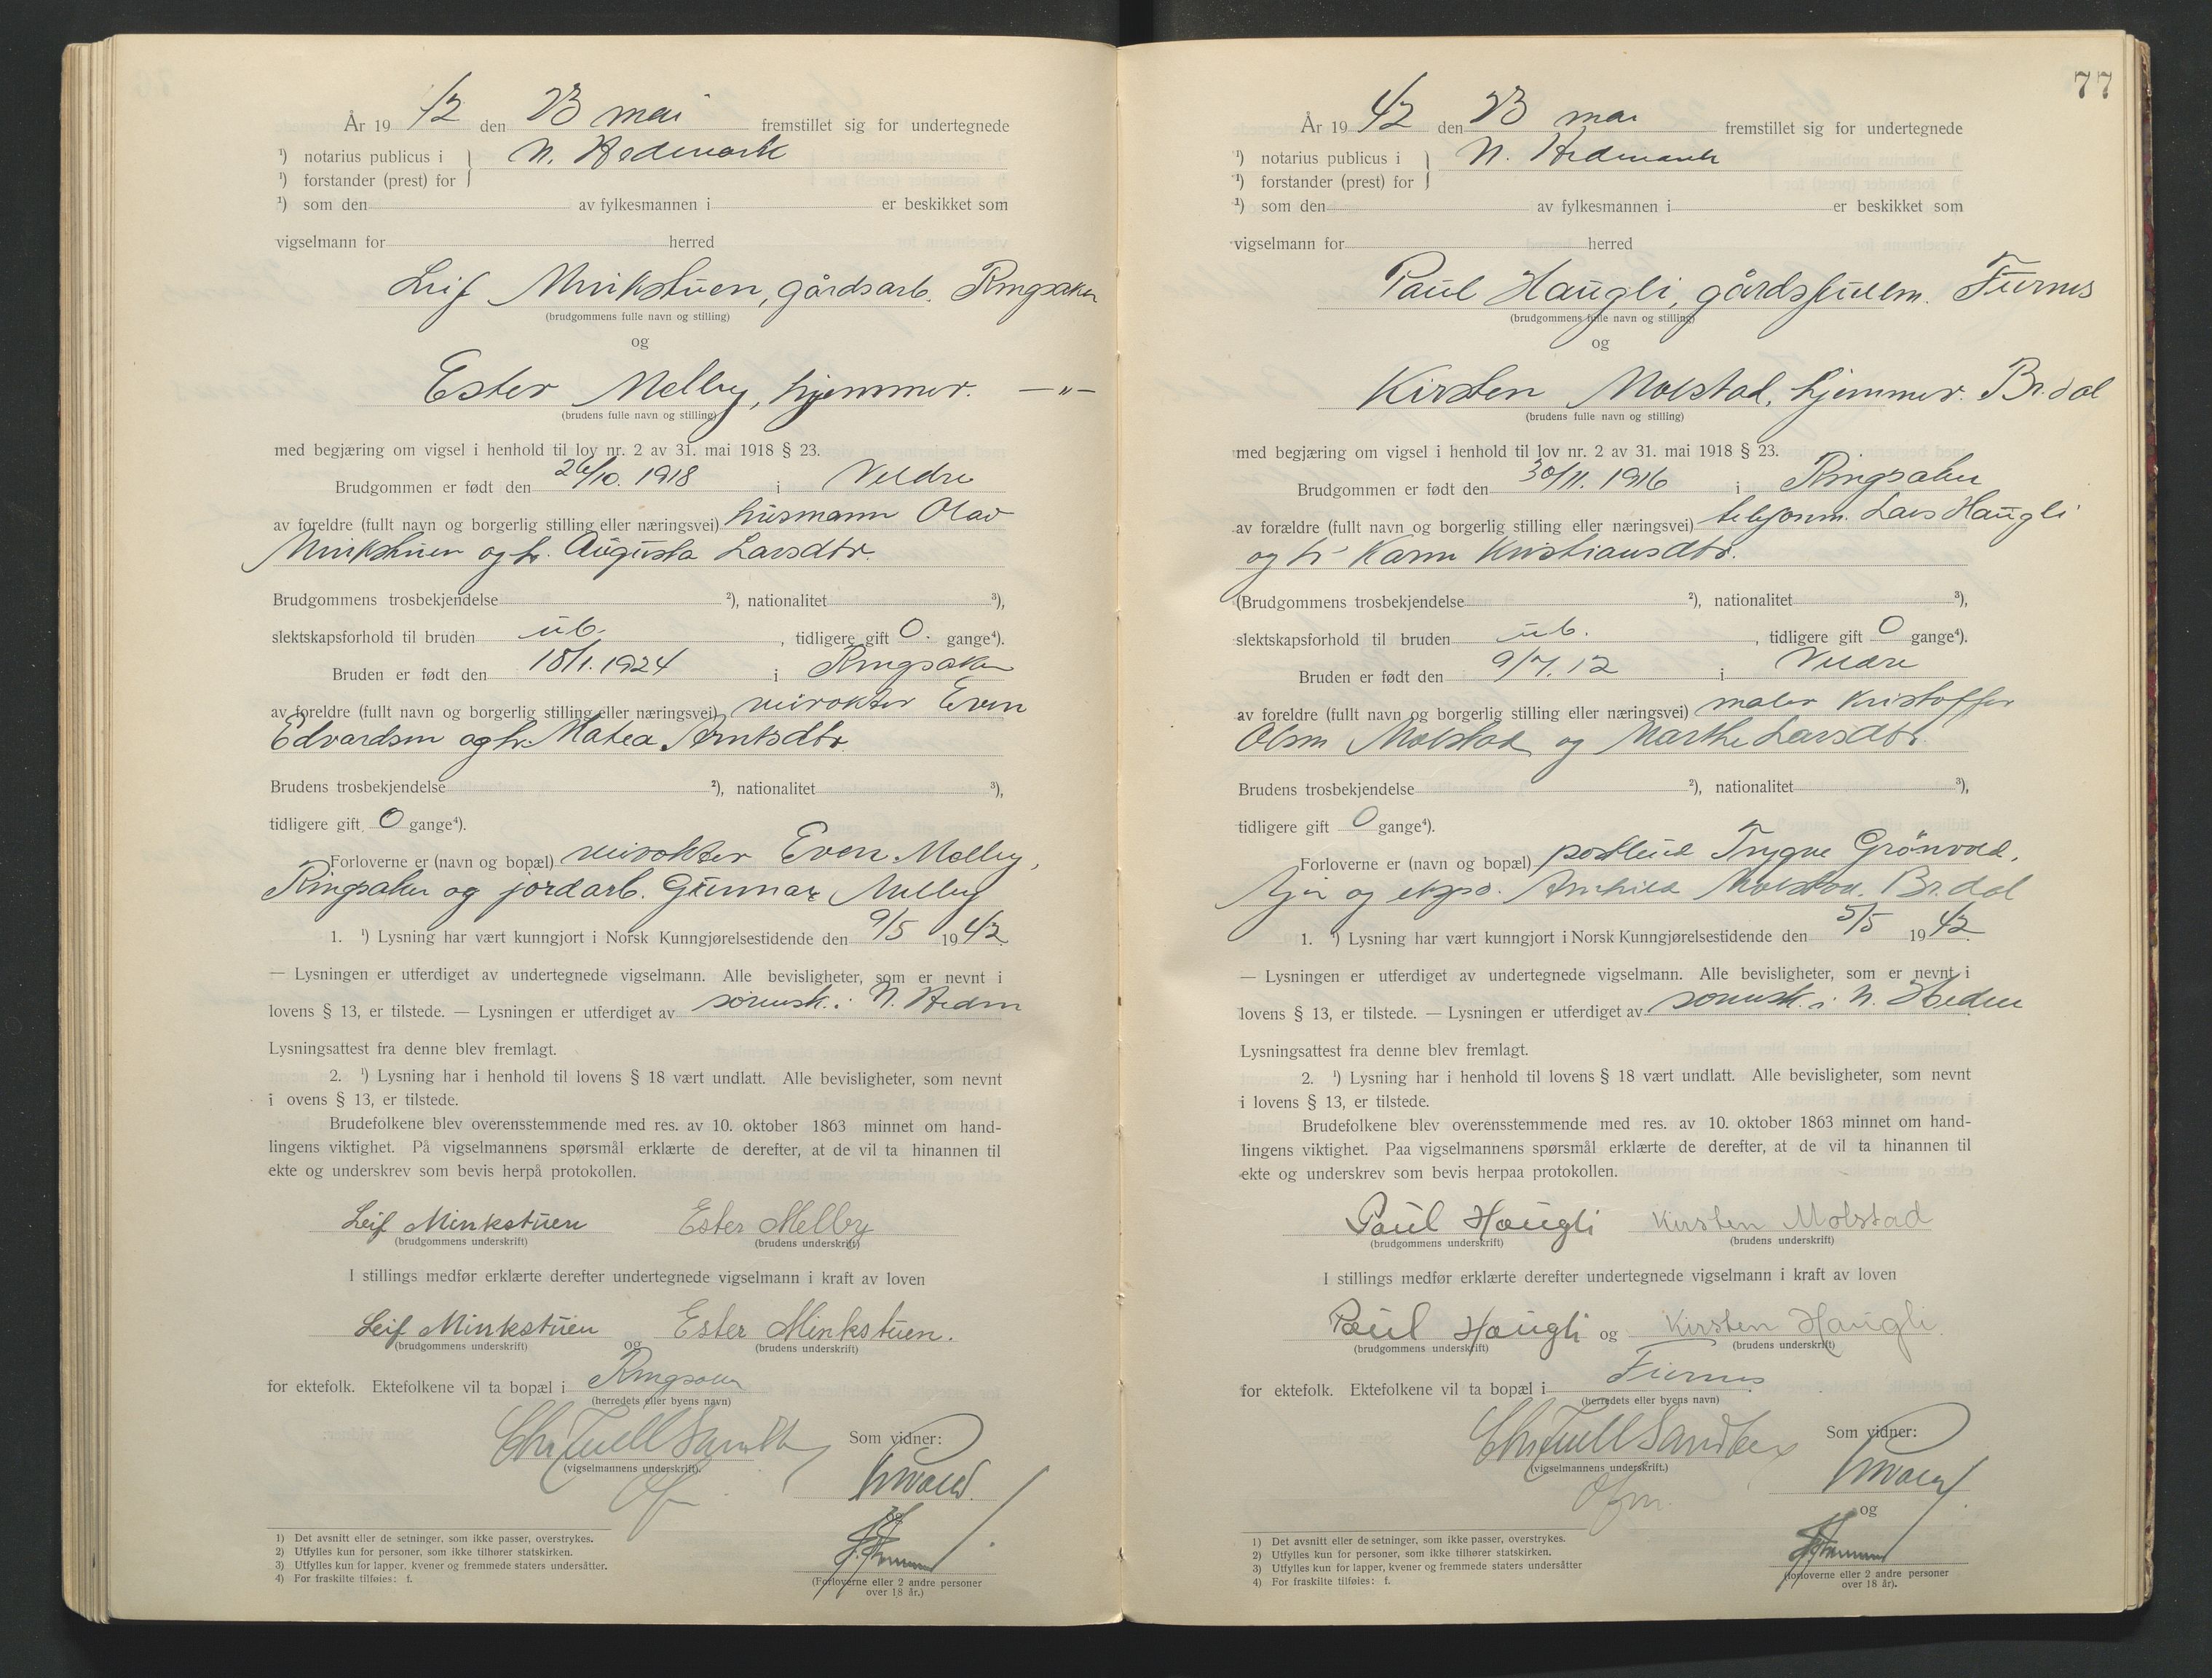 År 19 42 den 23 mai fremstillet sig for undertegnede
¹) notarius publicus i } N. Hedmark
¹) forstander (prest) for
¹) som den av fylkesmannen i er beskikket som
vigselmann for herred
Leif Minkstuen, gårdsarb. Ringsaker
(brudgommens fulle navn og stilling)
og
Ester Melby, hjemmev. —"—
(brudens fulle navn og stilling)
med begjæring om vigsel i henhold til lov nr. 2 av 31. mai 1918 § 23.
Brudgommen er født den 26/10. 1918 i Veldre
av foreldre (fullt navn og borgerlig stilling eller næringsvei) husmann Olav
Minkstuen og h. Augusta Larsdtr.
Brudgommens trosbekjendelse ²), nationalitet ³),
slektskapsforhold til bruden ub. , tidligere gift 0. gange⁴).
Bruden er født den 18/1. 1924 i Ringsaker
av foreldre (fullt navn og borgerlig stilling eller næringsvei) veivokter Even
Edvardsen og h. Matea Arntsdtr.
Brudens trosbekjendelse ²), nationalitet ³),
tidligere gift 0 gange⁴).
Forloverne er (navn og bopæl) veivokter Even Melby,
Ringsaker og jordarb. Gunnar Melby
1. ¹) Lysning har vært kunngjort i Norsk Kunngjørelsestidende den 9/5 1942
— Lysningen er utferdiget av undertegnede vigselmann. Alle bevisligheter, som er nevnt i
lovens § 13, er tilstede. — Lysningen er utferdiget av sorensk. i N. Hedm
Lysningsattest fra denne blev fremlagt.
2. ¹) Lysning har i henhold til lovens § 18 vært undlatt. Alle bevisligheter, som nevnt
i ovens § 13, er tilstede.
Brudefolkene blev overensstemmende med res. av 10. oktober 1863 minnet om hand-
lingens viktighet. På vigselmannens spørsmål erklærte de derefter, at de vil ta hinannen til
ekte og underskrev som bevis herpå protokollen.
Leif Minkstuen Ester Melby
(brudgommens underskrift) (brudens underskrift)
I stillings medfør erklærte derefter undertegnede vigselmann i kraft av loven
Leif Minkstuen og Ester Minkstuen.
(brudgommens underskrift) (brudens underskrift)
for ektefolk. Ektefolkene vil ta bopæl i Ringsaker
(herredets eller byens navn)
Som vidner:
(vigselmannens underskrift).
og
1) Det avsnitt eller de setninger, som ikke passer, overstrykes.
2) Utfylles kun for personer, som ikke tilhører statskirken.
3) Utfylles kun for lapper, kvener og fremmede staters undersåtter.
4) For fraskilte tilføies: f.
(Forloverne eller 2 andre personer
over 18 år.)
77
År 19 42 den 23 mai fremstillet sig for undertegnede
¹) notarius publicus i } N. Hedmark
¹) forstander (prest) for
¹) som den av fylkesmannen i er beskikket som
vigselmann for herred
Paul Haugli, gårdsfullm. Furnes
(brudgommens fulle navn og stilling)
og
Kirsten Molstad, hjemmev. Br.dal
(brudens fulle navn og stilling)
med begjæring om vigsel i henhold til lov nr. 2 av 31. mai 1918 § 23.
Brudgommen er født den 30/11. 1916 i Ringsaker
av forældre (fullt navn og borgerlig stilling eller næringsvei) Lars Haugli
og h. Karen Kristiansdtr.
(Brudgommens trosbekjendelse ²), nationalitet ³),
slektskapsforhold til bruden ub. , tidligere gift 0 gange⁴).
Bruden er født den 9/7. 12 i Veldre
av foreldre (fullt navn og borgerlig stilling eller næringsvei) maler Kristoffer
Olsen Molstad og Marthe Larsdtr.
Brudens trosbekjendelse ²), nationalitet ³),
tidligere gift 0 gange⁴).
Forloverne er (navn og bopæl) postbud Trygve Grönvold,
og Molstad, Br.dal
1. ¹) Lysning har vært kunngjort i Norsk Kunngjørelsestidende den 5/5 1942
— Lysningen er utferdiget av undertegnede vigselmann. Alle bevisligheter, som er nevnt i
lovens § 13, er tilstede. — Lysningen er utferdiget av sorensk. i N. Hedm
Lysningsattest fra denne blev fremlagt.
2. ¹) Lysning har i henhold til lovens § 18 vært undlatt. Alle bevisligheter, som nevnt
i lovens § 13, er tilstede.
Brudefolkene blev overensstemmende med res. av 10. oktober 1863 minnet om hand-
lingens viktighet. Paa vigselmannens spørsmål erklærte de derefter, at de vil ta hinannen til
ekte og underskrev som bevis herpaa protokollen.
Paul Haugli Kirsten Molstad
(brudgommens underskrift) (brudens underskrift)
I stillings medfør erklærte derefter undertegnede vigselmann i kraft av loven
Paul Haugli og Kirsten Haugli
(brudgommens underskrift) (brudens underskrift)
for ektefolk. Ektefolkene vil ta bopæl i Furnes
(herredets eller byens navn)
Som vidner:
(vigselmannens underskrift.)
og
1) Det avsnitt eller de setninger, som ikke passer, overstrykes.
2) Utfylles kun for personer, som ikke tilhører statskirken.
3) Utfylles kun for lapper, kvener og fremmede staters undersåtter
4) For fraskilte tilføies: f.
(forloverne eller 2 andre personer
over 18 år).